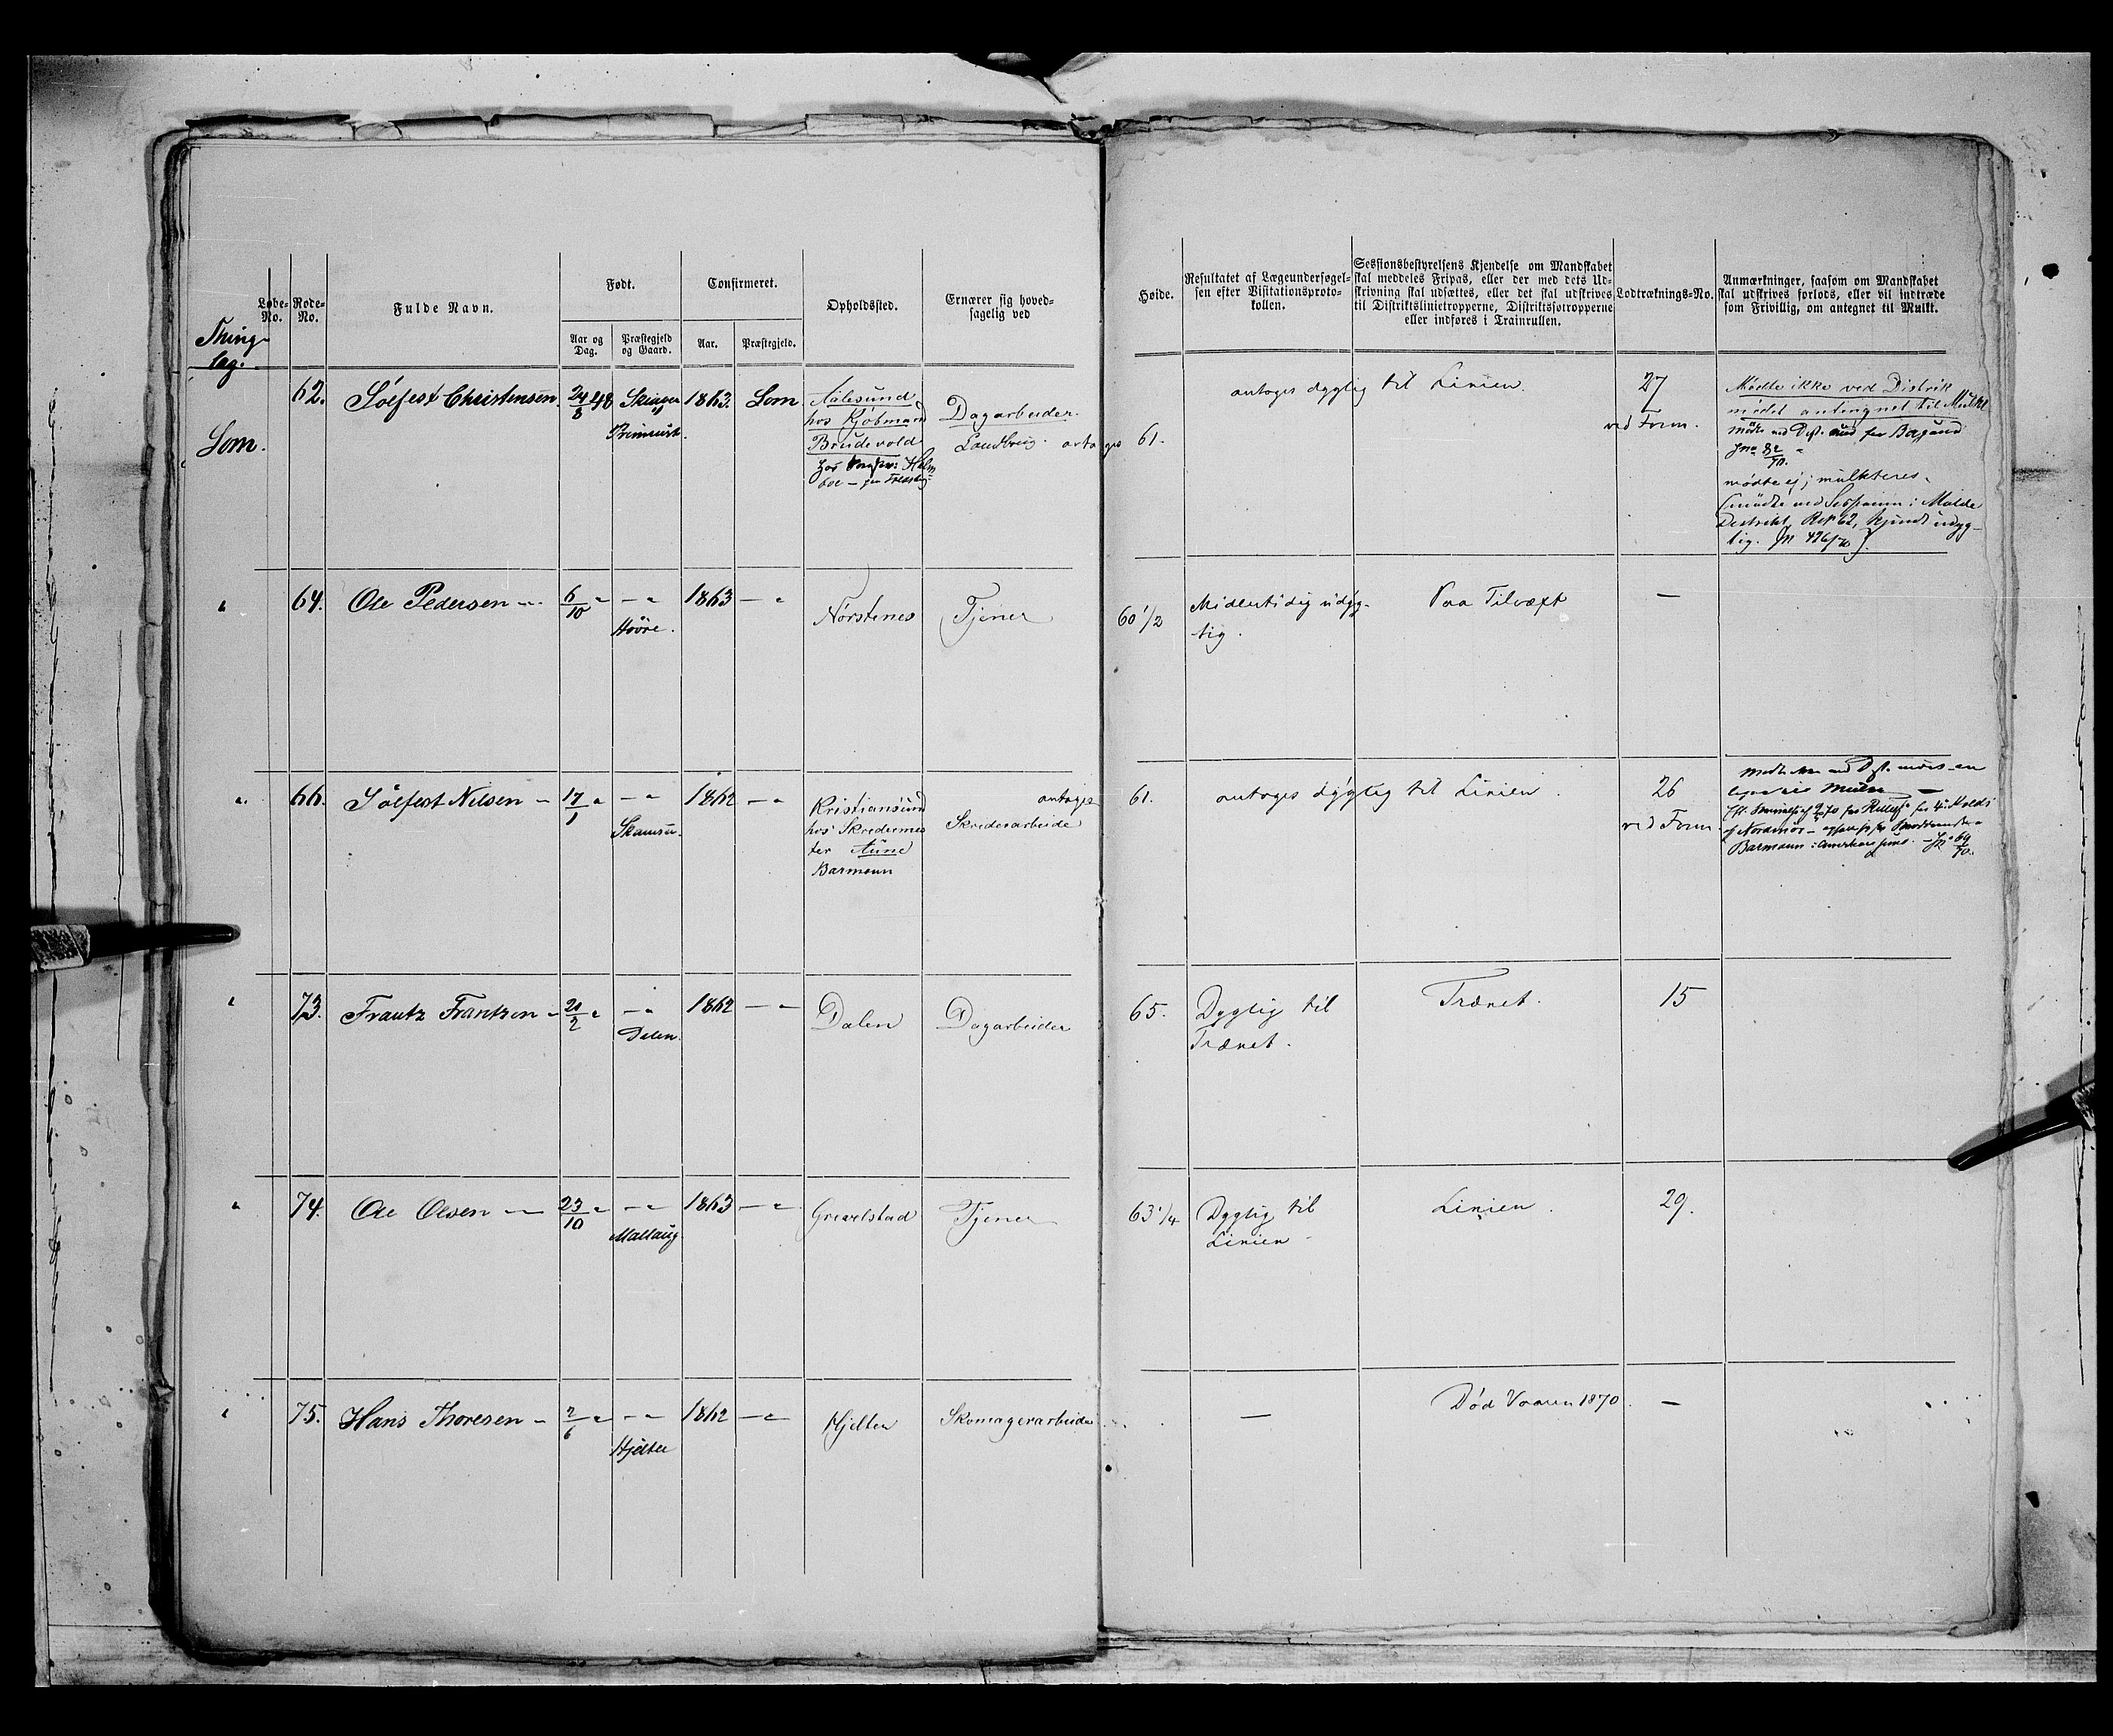 Løbe-No.
Rode-No.
Fulde Navn.
Født.
Aar og Dag.
Præstegjeld og Gaard.
Confirmeret.
Aar.
Præstegjeld.
Opholdssted.
Ernærer sig hoved-
sagelig ved
Høide.
Resultatet af Lægeundersøgel-
sen efter Visitationsproto-
kollen.
Sessionsbestyrelsens Kjendelse om Mandskabet
skal meddeles Fripas, eller der med dets Ud-
skrivning skal udsættes, eller det skal udskrives
til Distriktslinietropperne, Distriktsfotropperne
eller indføres i Trainrullen.
Lodtræknings-No.
Anmærkninger, saasom om Mandskabet
skal udskrives forlods, eller vil indtræde
som Frivillig, om antegnet til Mulkt.
Thing-
lag.
Lom.
62. Sølfest Christensen 24/8 48 Skiager 1863. Lom Aalesund
hos Kjøbmand
Brudevold
Dagarbeider.
antages 61. antages dygtig til Linien. 27
ved Form.
Mødte ikke ved Distrik
mødet antegnet til Mulkt
mødte ej; mulkteres.
" 64. Ole Pedersen — 6/10 " — " Høvre. 1863 — " Nørstenes Tjener 60 1/2 Midlertidig udyg-
tig. Paa Tilvæxt —
" 66. Sølfest Nilsen — 17/1 " — " 1862 — " Kristiansund
hos Skredermes
ter Aune
Barmann
antages
Skrederarbeide 61. antages dygtig til Linien. 26
ved Form
" 73. Frantz Frantzen — 21/2 " — " Dalen. 1862 — " Dalen Dagarbeider 65. Dygtig til
Trænet. Trænet. 15
" 74. Ole Olsen — 23/10 " — " 1863 — " Tjener 63 1/4 Dygtig til
Linien Linien. 29.
" 75. Hans Thoresen — 2/6 " — " Hjelter 1862 — " Hjelter Skomagerarbeide — Død Vaaren 1870. —